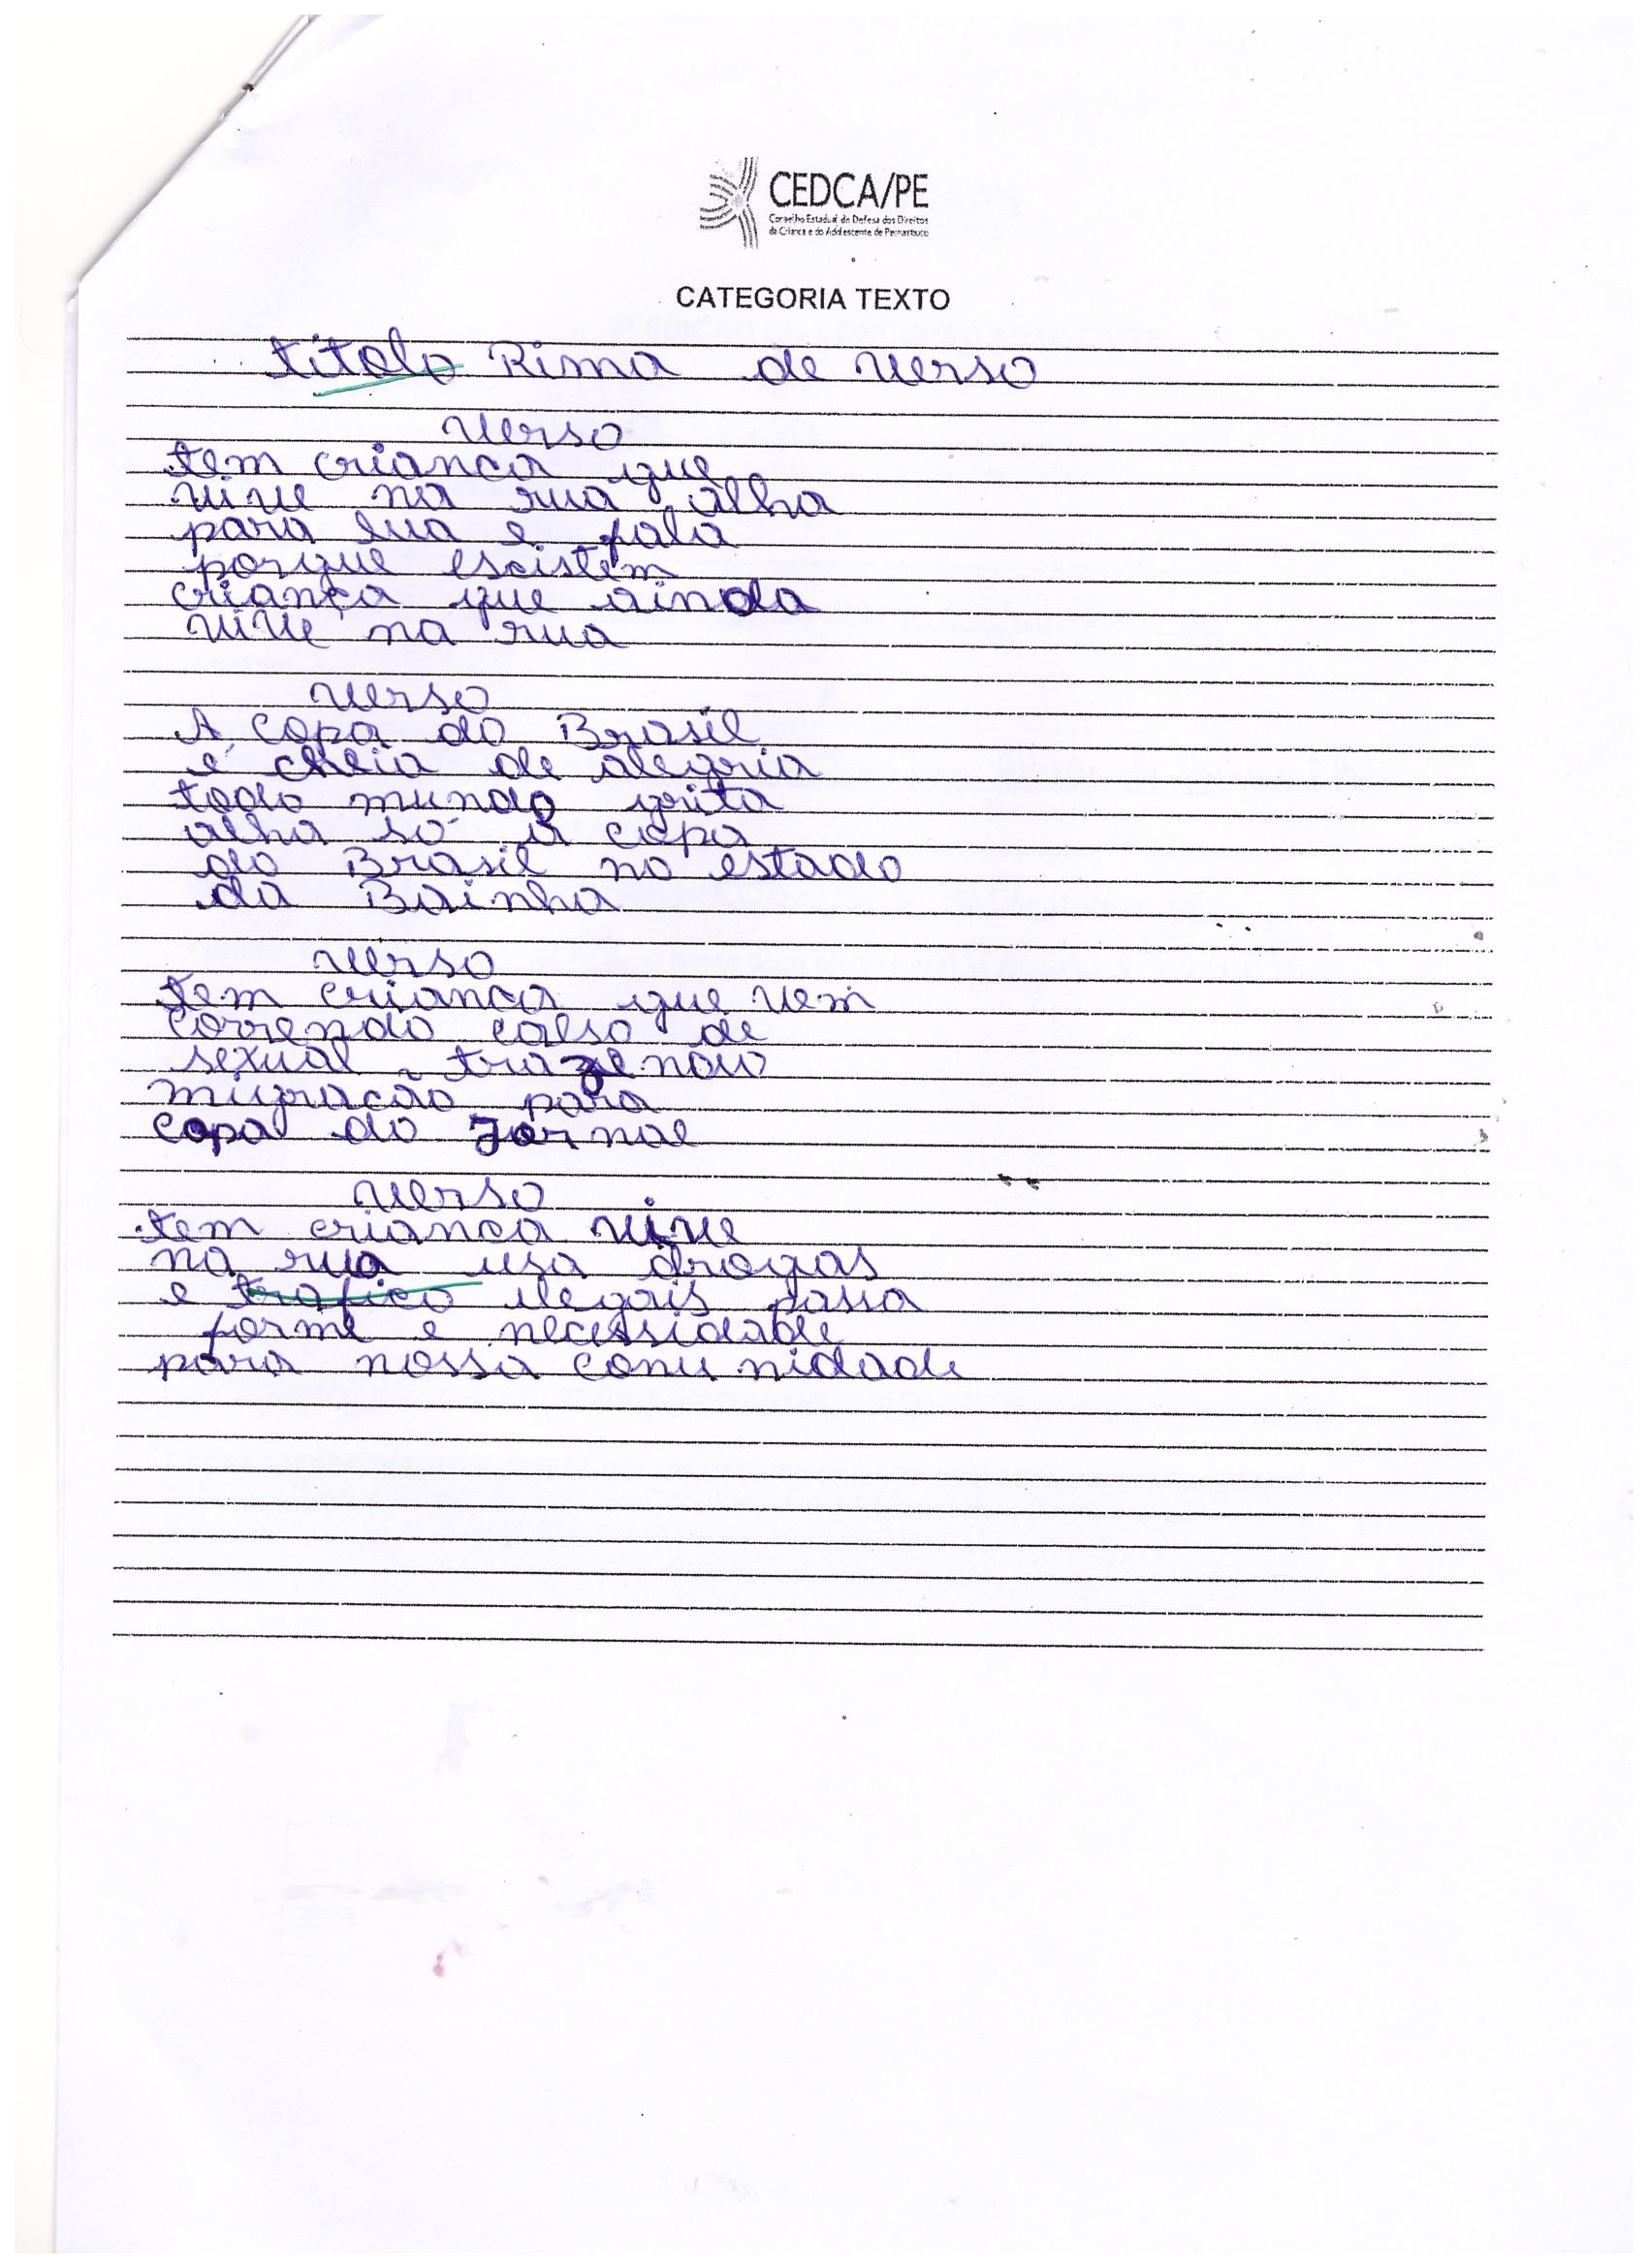 CEDCA/PE
Conselho Estadual de Defesa dos Direitos
da Criança e do Adolescente de Pernambuco
CATEGORIA TEXTO
titolo Rima de verso
verso
tem crianca que
vive na rua olha
para lua e fala
porque escistem
criança que ainda
vive na rua
verso
A copa do Brasil
é cheia de alegria
todo mundo grita
olha só a copa
do Brasil no estado
da Bainha
verso
tem crianca que vem
correndo calso de
sexual trazendo
migracão para
copa do Jornal
verso
tem crianca vive
na rua usa drogas
e trafico ilegais passa
forme e necessidade
para nossa comunidade